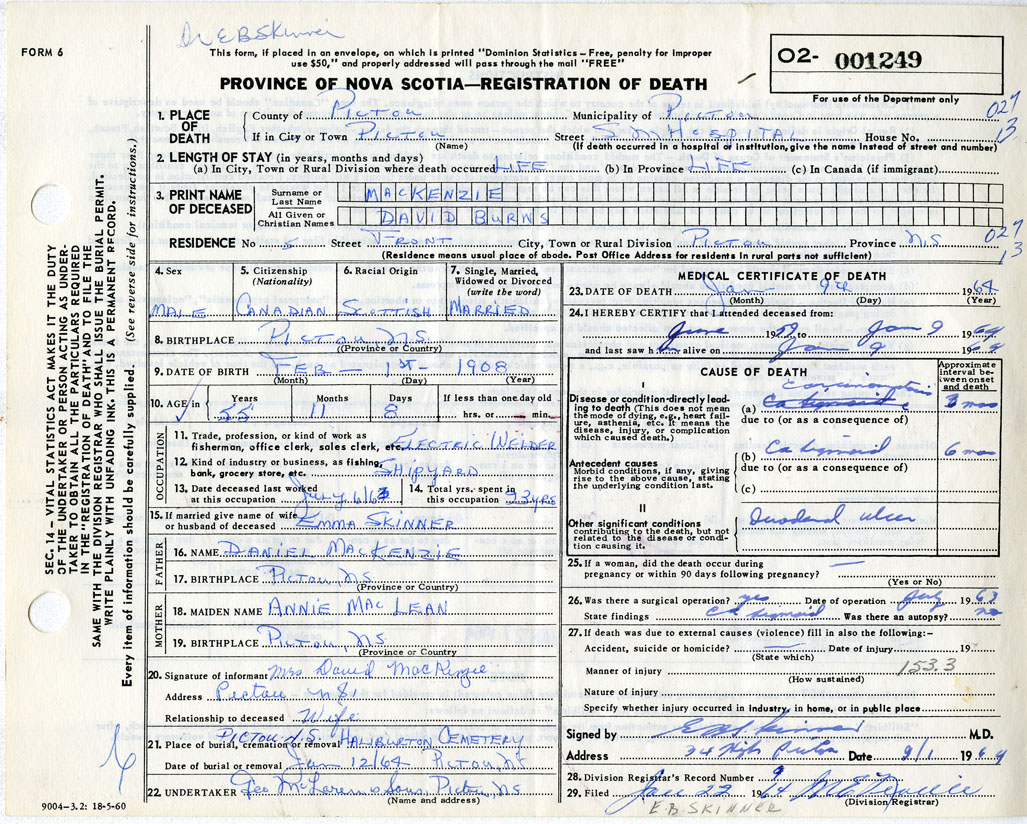 Dr E B Skinner
FORM 6
This form, if placed in an envelope, on which is printed "Dominion Statistics – Free, penalty for improper
use $50," and properly addressed will pass through the mail "FREE"
O2- 001249
For use of the Department only
PROVINCE OF NOVA SCOTIA—REGISTRATION OF DEATH
027
13
1. PLACE OF DEATH
County of Pictou Municipality of Pictou
If in City or Town Pictou Street S M Hospital House No.
(Name) (If death occurred in a hospital or institution, give the name instead of street and number)
2. LENGTH OF STAY (in years, months and days)
(a) In City, Town or Rural Division where death occurred LIFE (b) In Province LIFE (c) In Canada (if immigrant)
3. PRINT NAME OF DECEASED
Surname or Last Name MACKENZIE
All Given or Christian Names DAVID BURNS
RESIDENCE No 5 Street Front City, Town or Rural Division Pictou Province N.S
027
13
(Residence means usual place of abode. Post Office Address for residents in rural parts not sufficient)
SEC. 14 – VITAL STATISTICS ACT MAKES IT THE DUTY
OF THE UNDERTAKER OR PERSON ACTING AS UNDER-
TAKER TO OBTAIN ALL THE PARTICULARS REQUIRED
IN THE "REGISTRATION OF DEATH" AND TO FILE THE
SAME WITH THE DIVISION REGISTRAR WHO SHALL ISSUE THE BURIAL PERMIT.
WRITE PLAINLY WITH UNFADING INK. THIS IS A PERMANENT RECORD.
Every item of information should be carefully supplied. (See reverse side for instructions.)
4. Sex MALE
5. Citizenship (Nationality) CANADIAN
6. Racial Origin SCOTTISH
7. Single, Married, Widowed or Divorced (write the word) MARRIED
8. BIRTHPLACE Pictou N.S.
(Province or Country)
9. DATE OF BIRTH FEB – 1st – 1908
(Month) (Day) (Year)
10. AGE in Years 55 Months 11 Days 8 If less than one day old
hrs. or min.
OCCUPATION
11. Trade, profession, or kind of work as
fisherman, office clerk, sales clerk, etc. ELECTRIC WELDER
12. Kind of industry or business, as fishing,
bank, grocery store, etc. SHIPYARD
13. Date deceased last worked
at this occupation July 6/63
14. Total yrs. spent in
this occupation 23 yrs
15. If married give name of wife
or husband of deceased EMMA SKINNER
FATHER
16. NAME DANIEL MACKENZIE
17. BIRTHPLACE Pictou N.S.
(Province or Country)
MOTHER
18. MAIDEN NAME ANNIE MACLEAN
19. BIRTHPLACE Pictou, NS
(Province or Country)
20. Signature of informant Mrs David MacKenzie
Address Pictou NS
Relationship to deceased Wife
21. Place of burial, cremation or removal PICTOU N.S. HALIBURTON CEMETERY
Date of burial or removal Jan 12/64 Pictou, NS
22. UNDERTAKER Geo McLaren & Sons, Pictou, NS
(Name and address)
9004–3.2: 18-5-60
MEDICAL CERTIFICATE OF DEATH
23. DATE OF DEATH Jan 9th 1964
(Month) (Day) (Year)
24. I HEREBY CERTIFY that I attended deceased from:
June 1959 Jan 9 1964
and last saw h alive on Jan 9 1964
CAUSE OF DEATH
Approximate interval between onset and death
I
Disease or condition directly leading to death (This does not mean the mode of dying, e.g., heart failure, asthenia, etc. It means the disease, injury, or complication which caused death.)
(a) Carcinomatosis 3 mos
due to (or as a consequence of)
Antecedent causes
Morbid conditions, if any, giving rise to the above cause, stating the underlying condition last.
(b) Ca sigmoid 6 mos
due to (or as a consequence of)
(c)
II
Other significant conditions
contributing to the death, but not related to the disease or condition causing it.
Duodenal ulcer
25. If a woman, did the death occur during
pregnancy or within 90 days following pregnancy? —
(Yes or No)
26. Was there a surgical operation? yes Date of operation July 1963
State findings Ca sigmoid Was there an autopsy? no
27. If death was due to external causes (violence) fill in also the following:–
Accident, suicide or homicide? — Date of injury 19
(State which)
153.3
Manner of injury
(How sustained)
Nature of injury
Specify whether injury occurred in industry, in home, or in public place
Signed by E B Skinner M.D.
Address 34 High Pictou Date 9/1 1964
28. Division Registrar's Record Number 9
29. Filed Jan 22 1964
(Division Registrar)
E B SKINNER